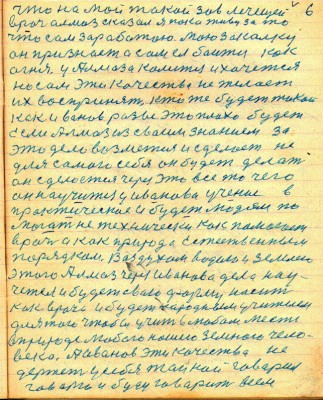 что на мой такой зов лечущей 6
врач алмаз сказал я пока живу за то
что сам заработаю. Мою закалку
он признает а сам ся боится как
огня. у Алмаза болится и хочется
но сам эти качества не желает
их воспринят. кто же будет такой
как иванов разве это плохо будет
если Алмаз из своим знанием за
это дело возмется и сделает не
для самого себя он будет делат
он сделается через это все то чего
он научится у иванова учение в
практическое и будет людям по
могат не технически как помогает
врач а как природа естественным
порядком. Воздухом водою и землею
этого Алмаз через иванова дела нау-
чится и будет свою форму носит
как врач и будет народным учителем
для того чтобы учить в любом месте
в природе любого нашего земного чело-
века. А иванов эти качества не
держет у себя тайной говорил
говорю и буду говорит всем